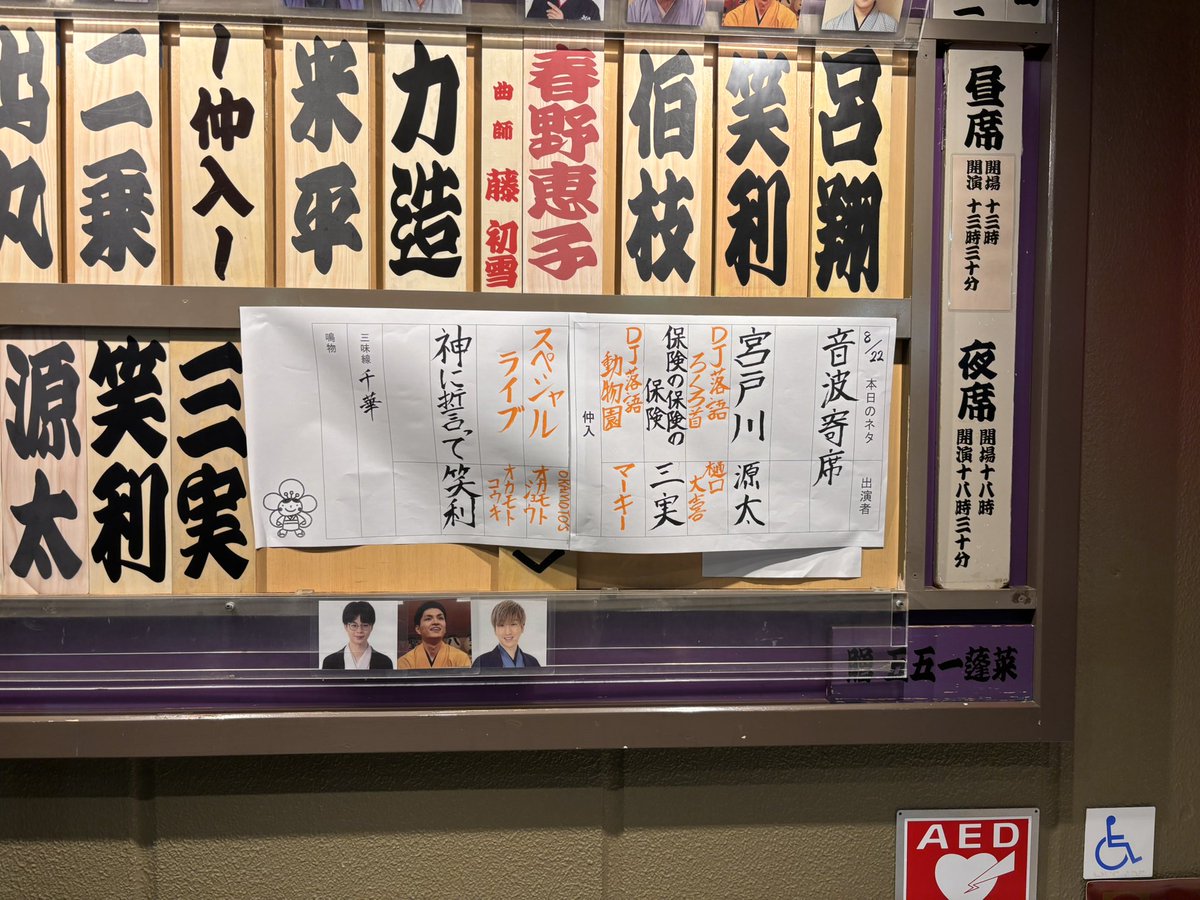 昼席
開場 十三時
開演 十三時三十分
呂翔
笑利
伯枝
春野恵子
曲師 藤初雪
力造
米平
ー仲入ー
二乗
夜席
開場十八時
開演十八時三十分
8/22 本日のネタ 出演者
音波寄席
宮戸川 源太
DJ落語 ろくろ首 樋口大喜
保険の保険の保険 三実
DJ落語 動物園 マーキー
仲入
スペシャルライブ OKAMOTO'S オカモトショウ オカモトコウキ
神に誓って 笑利
三味線 千華
鳴物
三実
笑利
源太
五五一蓬莱
AED